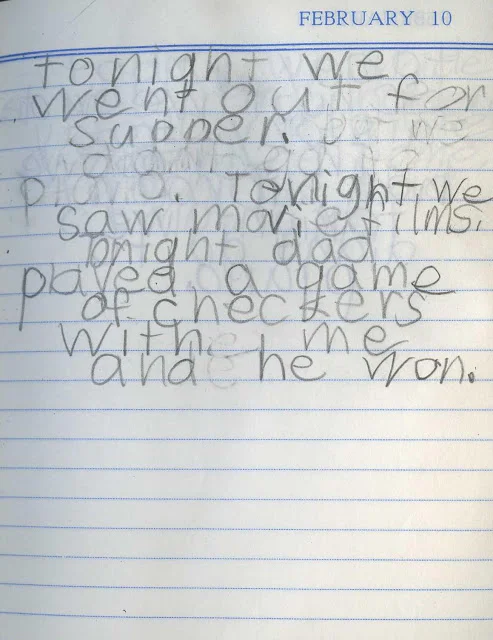 FEBRUARY 10
tonight we
went out for
supper. but we
didnt go to
Tonight we
saw movie films.
Tonight dad
played a game
of checkers
with me
and he won.